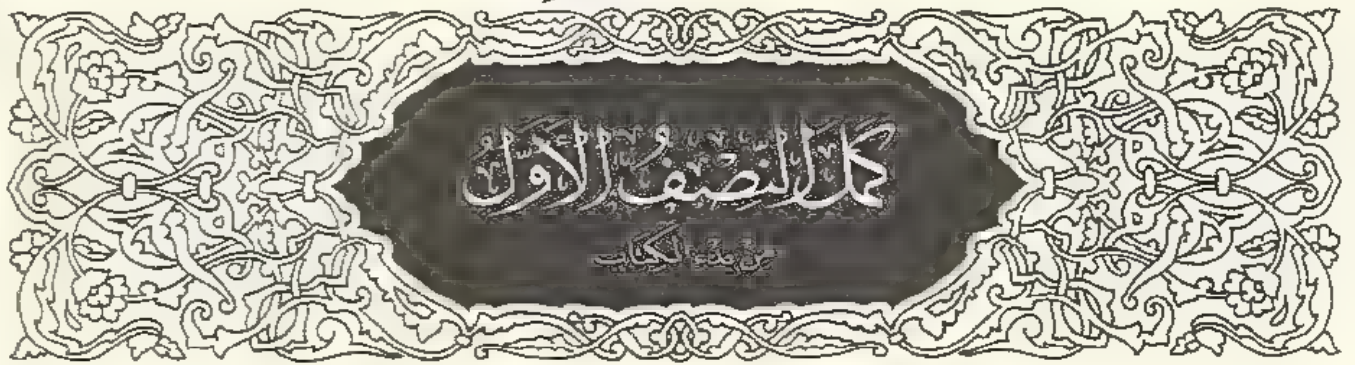 كمل النصف الأول
من هذا الكتاب